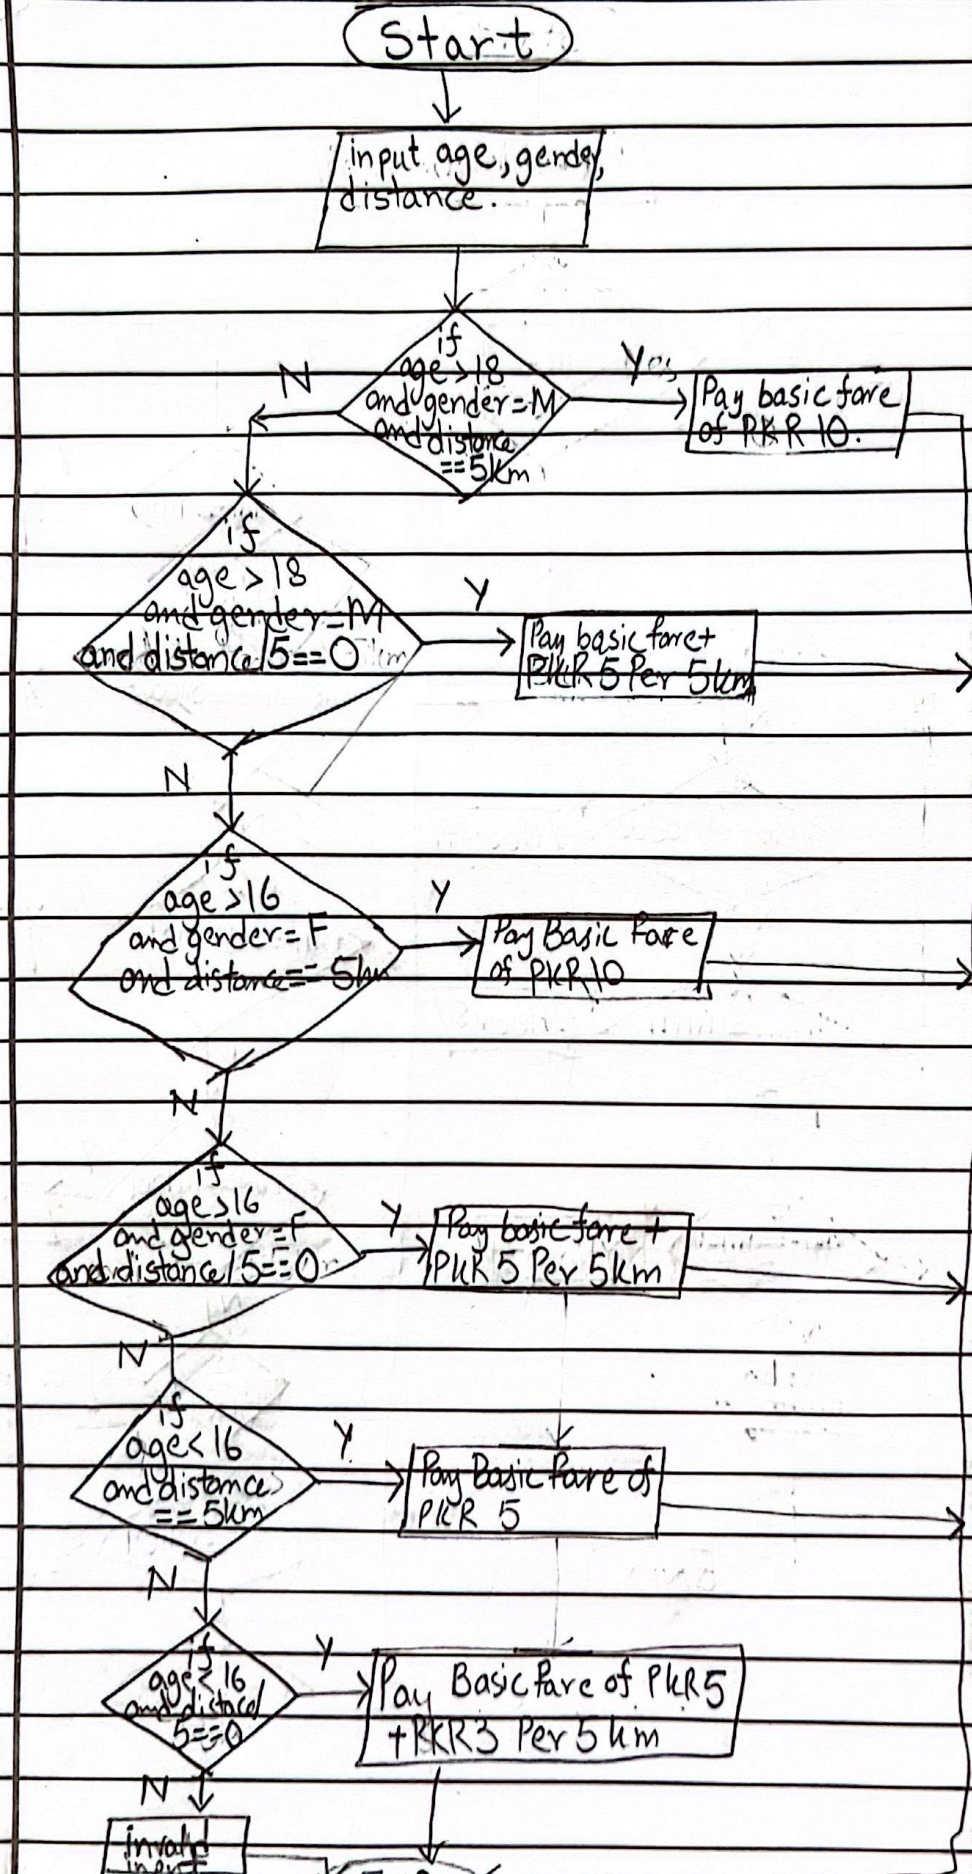 Start
input age, gender,
distance.
if
age >18
and gender = M
and distance
== 5km
N
Yes
Pay basic fare
of PKR 10.
if
age > 18
and gender = M
and distance/5==0 km
Y
Pay basic fare +
PKR 5 Per 5km
N
if
age >16
and gender = F
and distance == 5km
Y
Pay Basic Fare
of PKR 10
N
if
age >16
and gender = F
and distance/5==0
Y
Pay basic fare +
PKR 5 Per 5km
N
if
age < 16
and distance
== 5km
Y
Pay Basic Fare of
PKR 5
N
if
age < 16
and distace/
5==0
Y
Pay Basic Fare of PKR 5
+PKR3 Per 5 km
N
invalid
input